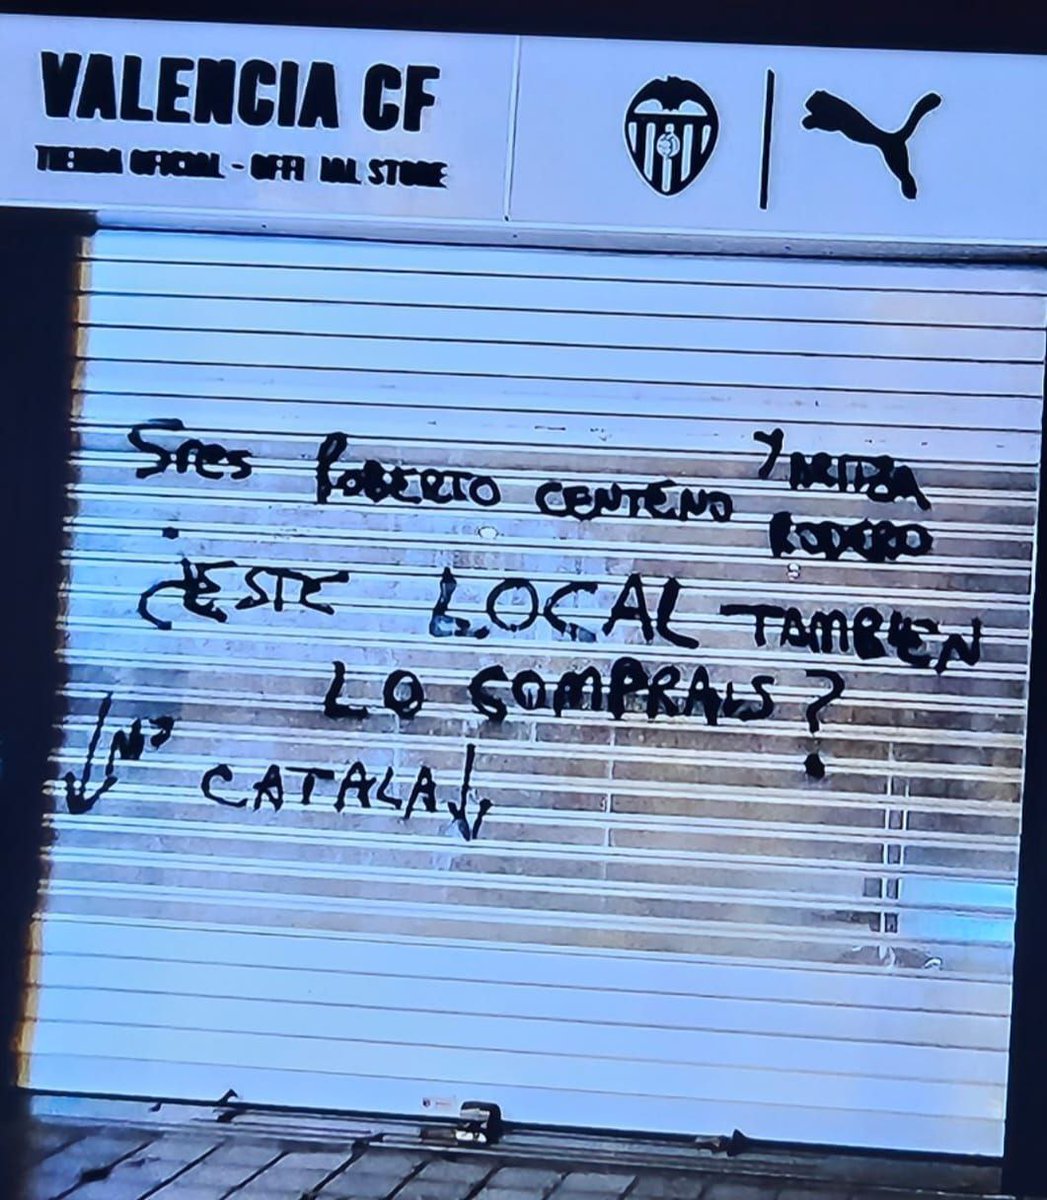 VALENCIA CF
TIENDA OFICIAL - OFFICIAL STORE
Sres ROBERTO CENTENO Y
RODERO
¿ESTE LOCAL TAMBIEN
LO COMPRAIS?
Nº
CATALA